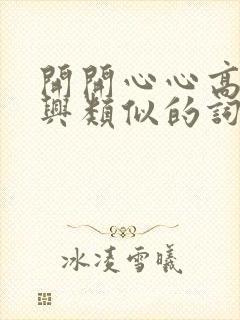 開開心心高
興類似的詞
冰凌雪曦